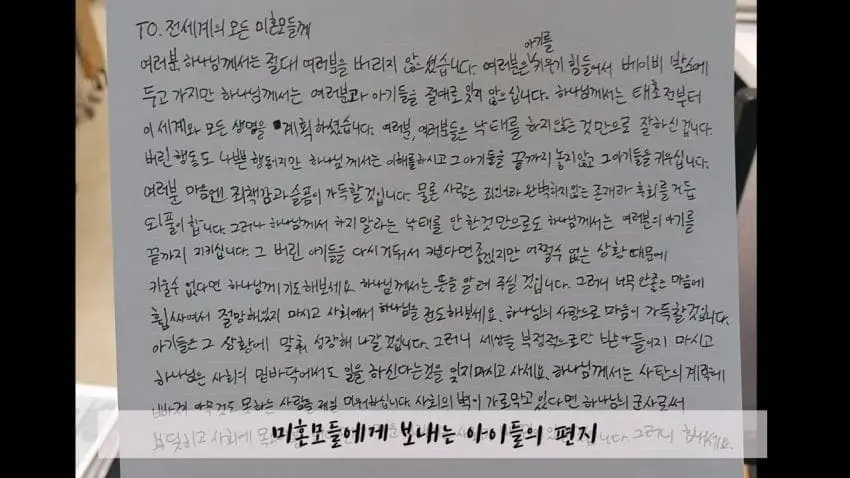 TO. 전세계의 모든 미혼모들께
여러분, 하나님께서는 절대 여러분을 버리지 않으셨습니다. 여러분은 아기를 키우기 힘들어서 베이비 박스에
두고 가지만 하나님께서는 여러분과 아기들을 절대로 잊지 않으십니다. 하나님께서는 태초전부터
이 세계와 모든 생명을 계획하셨습니다. 여러분, 여러분들은 낙태를 하지않은 것 만으로 잘하신 겁니다.
버린 행동도 나쁜 행동이지만 하나님께서는 이해를하시고 그 아기들을 끝까지 놓지않고 그아기들을 키우십니다.
여러분 마음엔 죄책감과 슬픔이 가득할 것입니다. 물론 사람은 죄인이라 완벽하지않는 존재라 후회를 거듭
되풀이 합니다. 그러나 하나님께서 하지 말라는 낙태를 안 한것 만으로도 하나님께서는 여러분의 아기를
끝까지 지키십니다. 그 버린 아기들을 다시 거둬서 키운다면 좋겠지만 어쩔수 없는 상황 때문에
키울수 없다면 하나님께 기도해보세요. 하나님께서는 뜻을 알려 주실 것입니다. 그러니 너무 안좋은 마음에
휩싸여서 절망해있지 마시고 사회에서 하나님을 전도해보세요. 하나님의 사랑으로 마음이 가득할것입니다.
아기들은 그 상황에 맞춰 성장해 나갈 것입니다. 그러니 세상을 부정적으로만 받아들이지 마시고
하나님은 사회의 밑바닥에서도 일을 하신다는것을 잊지마시고 사세요. 하나님께서는 사탄의 계략에
빠져 아무것도 못하는 사람을 제일 미워하십니다. 사회의 벽이 가로막고 있다면 하나님의 군사로써
부딪히고 사회에 그러니 힘내세요.
미혼모들에게 보내는 아이들의 편지